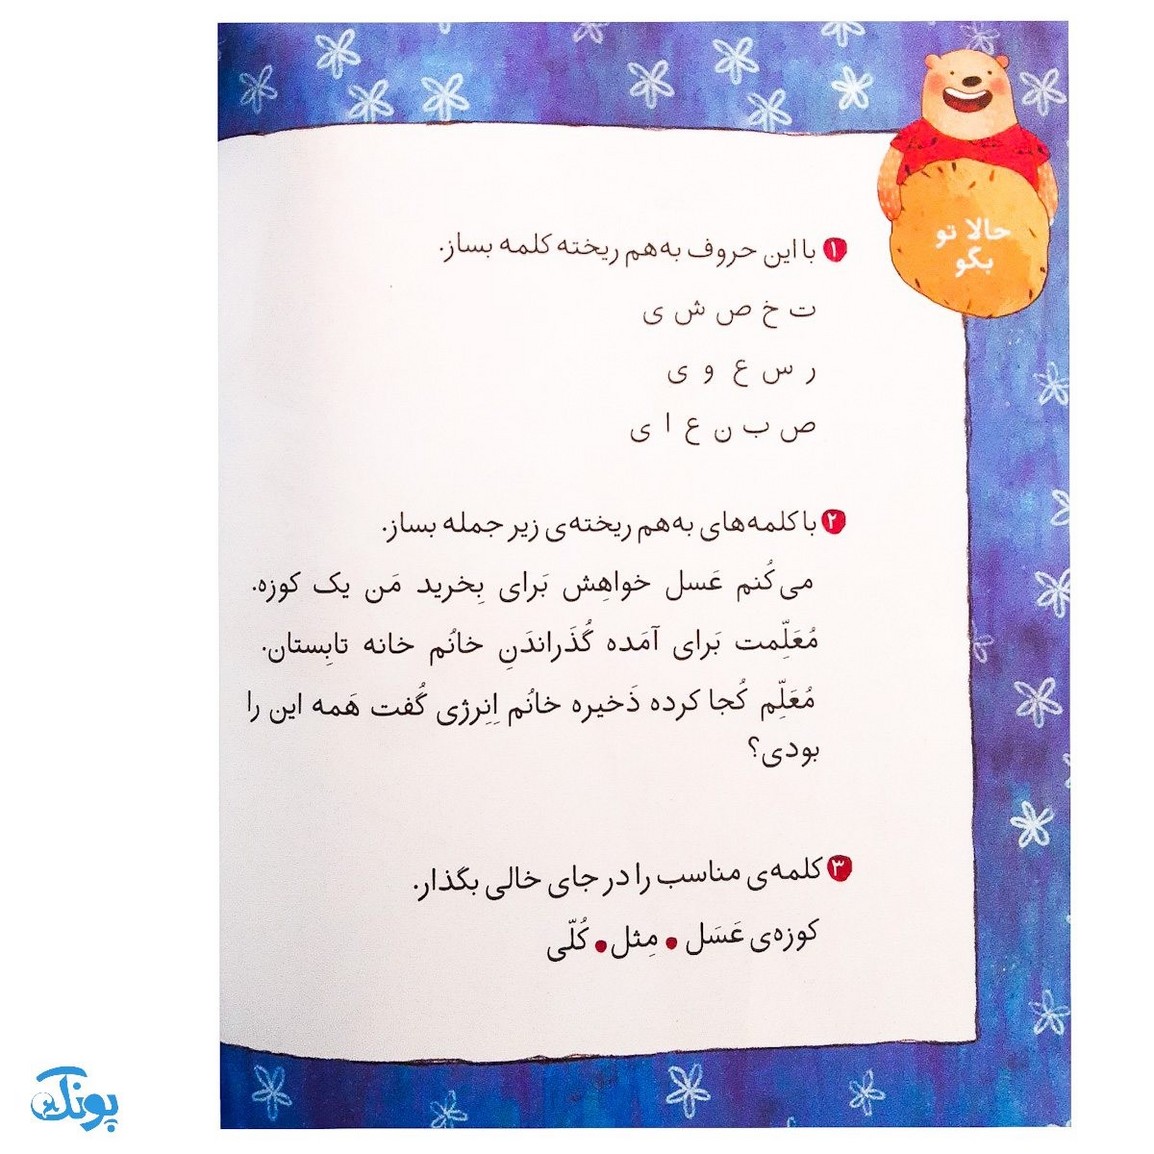 حالا تو
بگو
۱ با این حروف به‌هم ریخته کلمه بساز.
ت خ ص ش ی
ر س ع و ی
ص ب ن ع ا ی
۲ با کلمه‌های به‌هم ریخته‌ی زیر جمله بساز.
می‌کُنم عَسل خواهِش بَرای بِخرید مَن یک کوزه.
مُعَلِّمت بَرای آمَده گُذَراندَنِ خانُم خانه تابِستان.
مُعَلِّم کُجا کرده ذَخیره خانُم اِنِرژی گُفت هَمه این را
بودی؟
۳ کلمه‌ی مناسب را در جای خالی بگذار.
کوزه‌ی عَسَل • مِثل • کُلّی
پونک